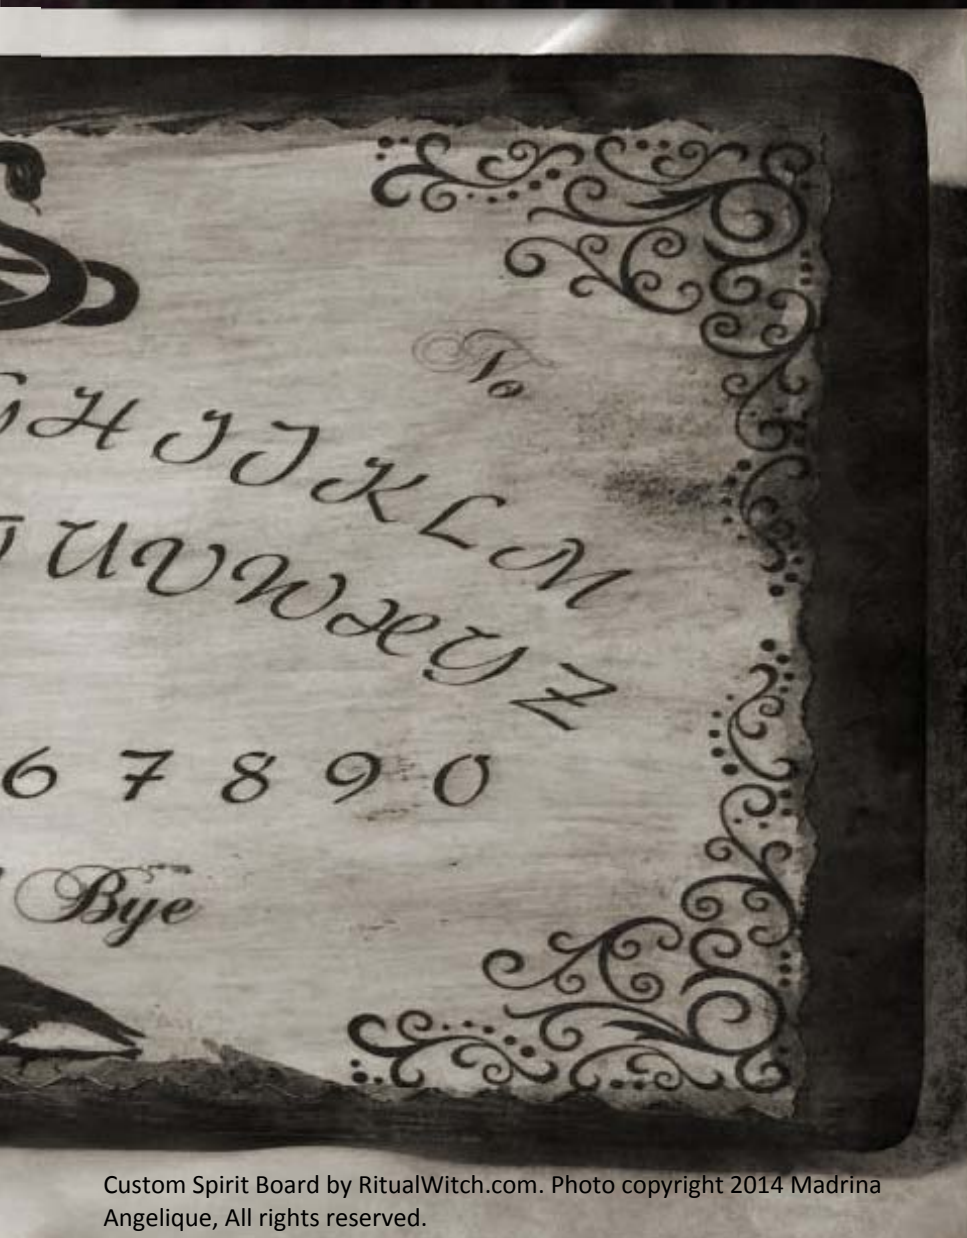 No
G H I J K L M
T U V W X Y Z
6 7 8 9 0
Bye
Custom Spirit Board by RitualWitch.com. Photo copyright 2014 Madrina
Angelique, All rights reserved.